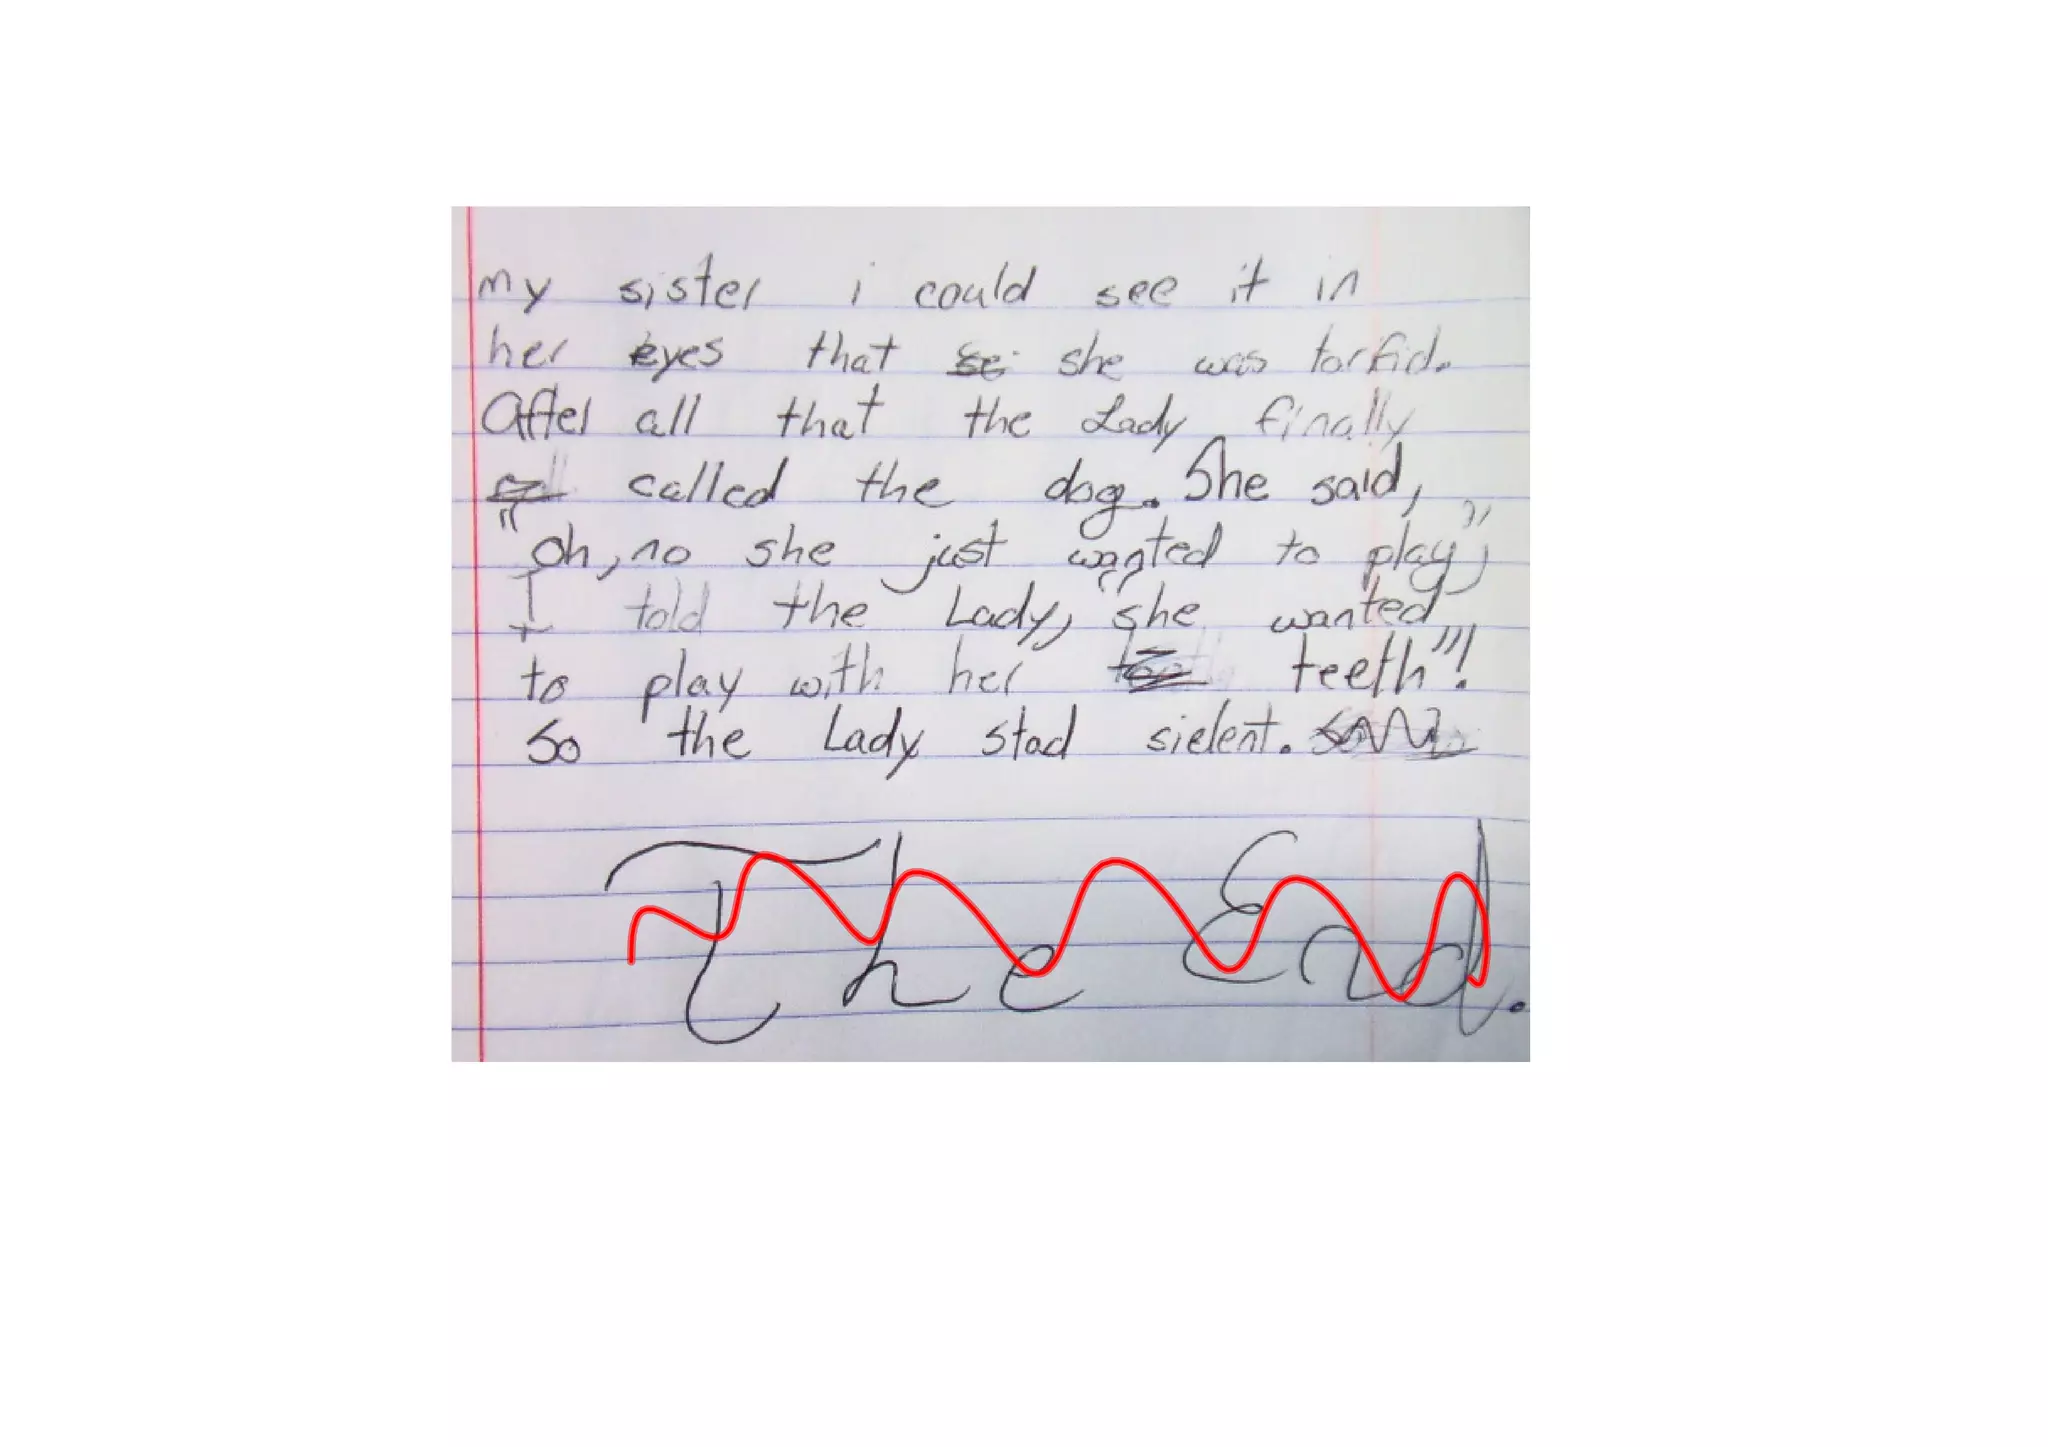 my sister i could see it in
her eyes that she was torfid.
After all that the Lady finally
called the dog. She said,
"oh, no she just wanted to play",
I told the Lady, "she wanted
to play with her teeth"!
so the Lady stad sielent.
The End.